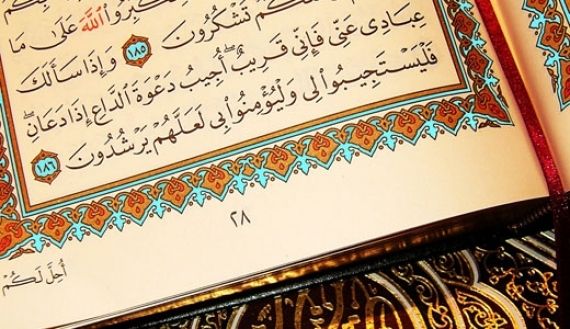 كُمْ تَشْكُرُونَ
كَبِّرُوا۟ ٱللَّهَ عَلَىٰ مَا
وَلَعَلَّكُمْ تَشْكُرُونَ ١٨٥ وَإِذَا سَأَلَكَ
عِبَادِى عَنِّى فَإِنِّى قَرِيبٌ ۖ أُجِيبُ دَعْوَةَ ٱلدَّاعِ إِذَا دَعَانِ ۖ
فَلْيَسْتَجِيبُوا۟ لِى وَلْيُؤْمِنُوا۟ بِى لَعَلَّهُمْ يَرْشُدُونَ ١٨٦
٢٨
أُحِلَّ لَكُمْ